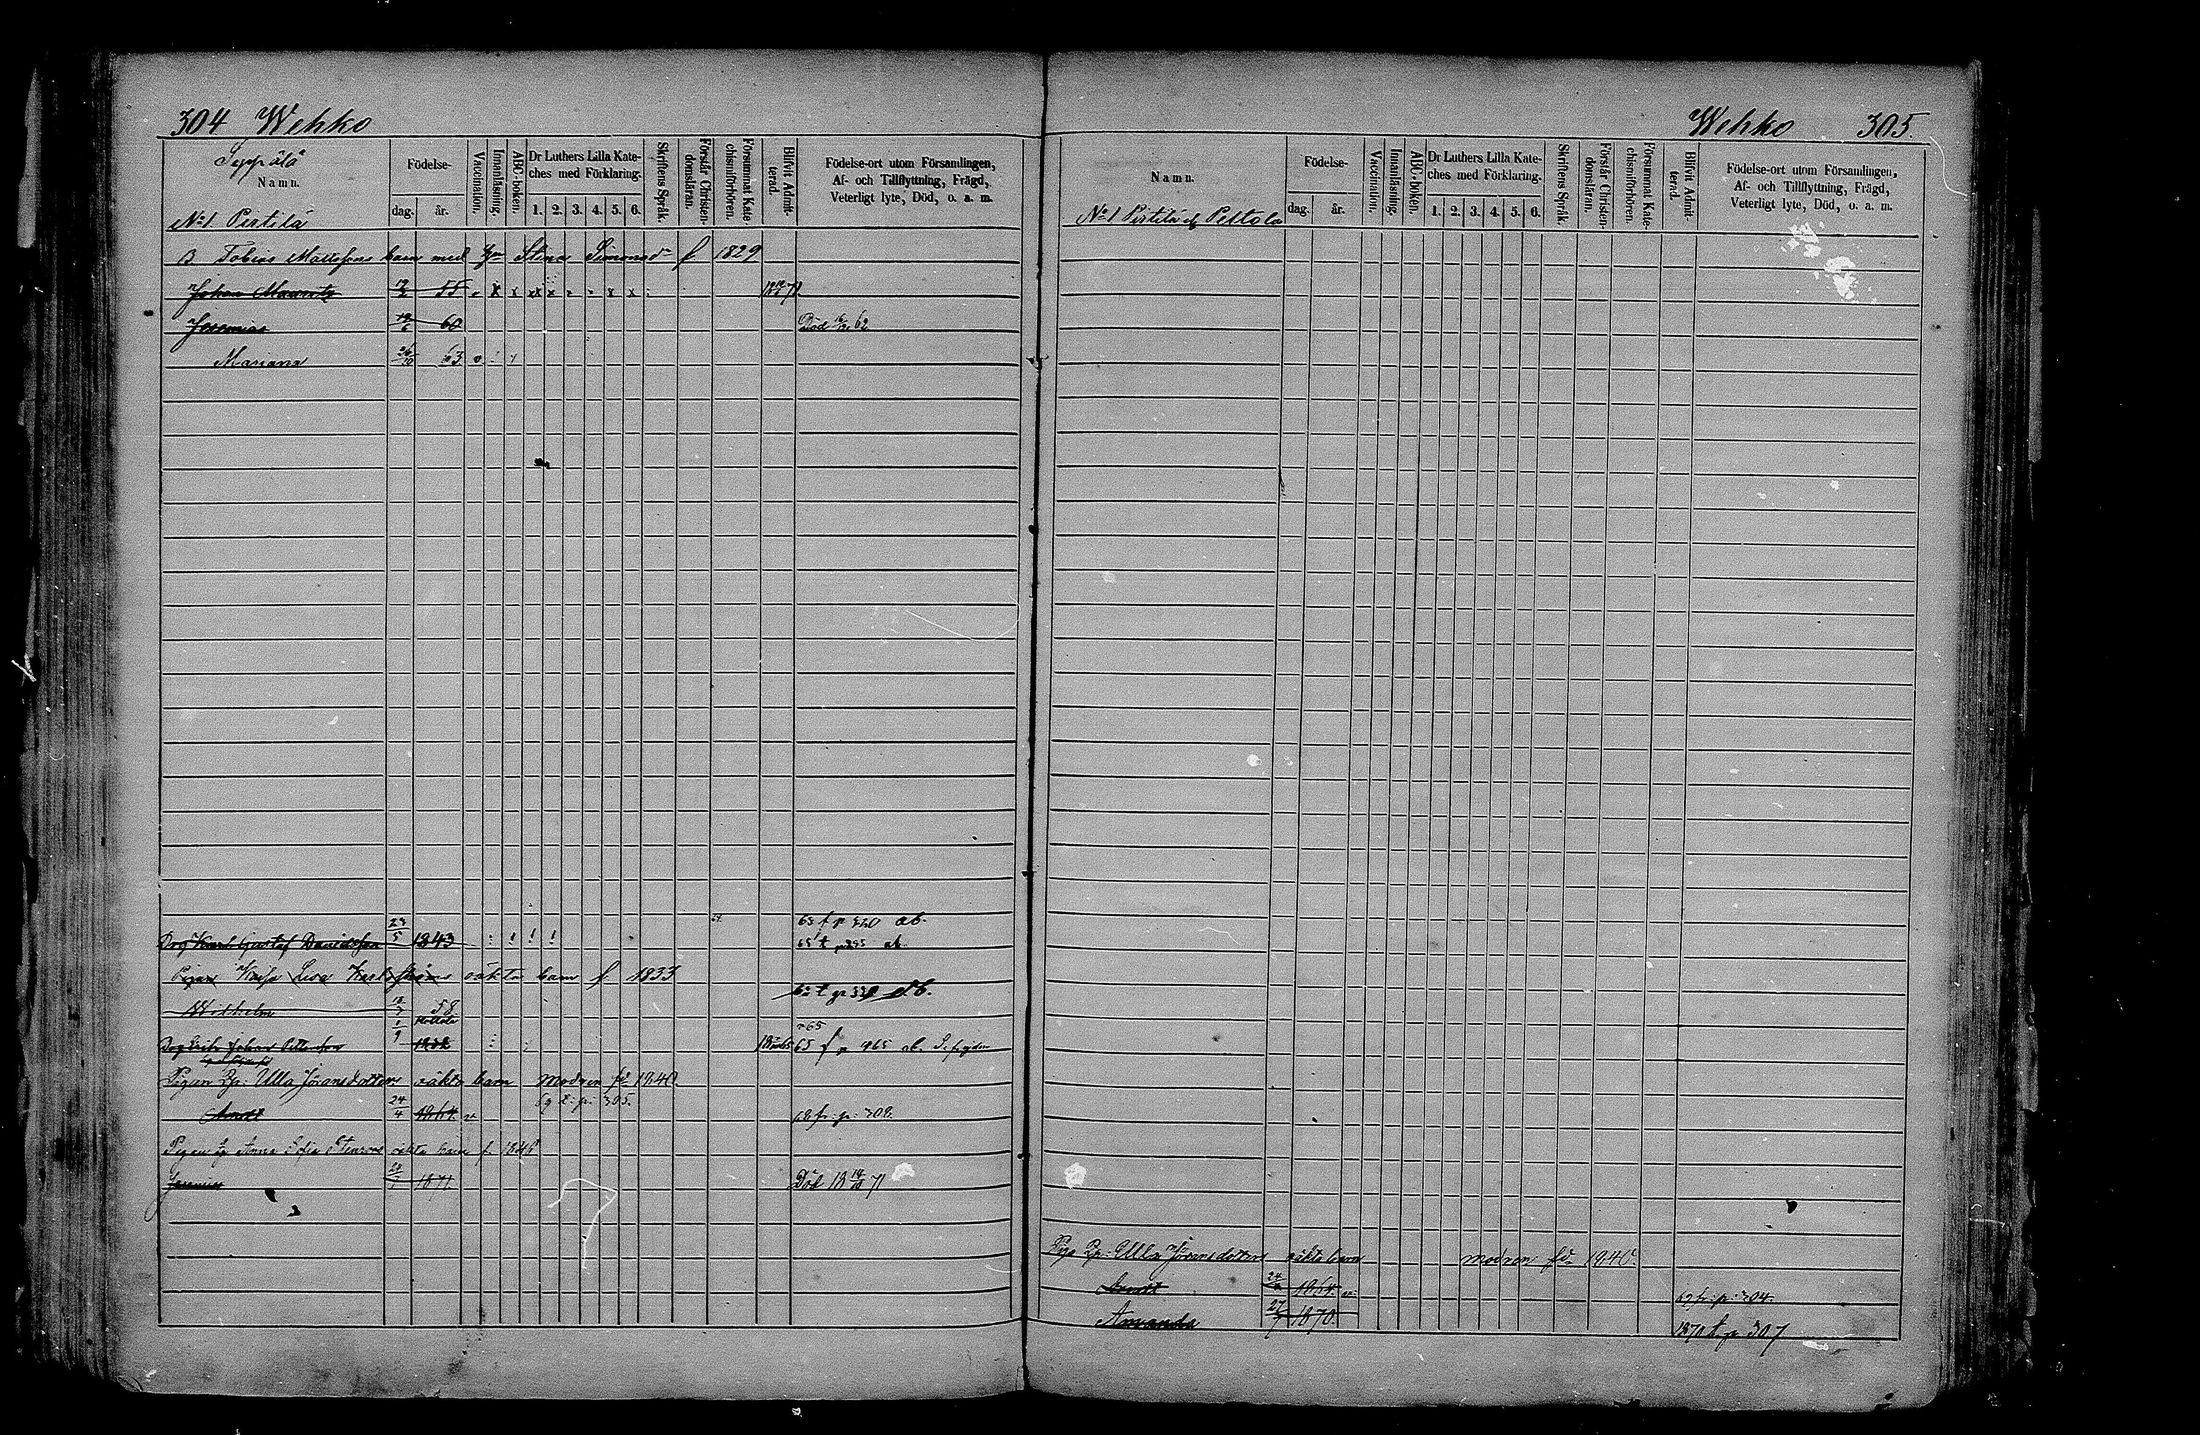 304 Wehko
Seppälä
Namn.
Födelse-
dag.
år.
Vaccination.
Innanläsning.
ABC-boken.
Dr Luthers Lilla Kate-
ches med Förklaring.
1. 2. 3. 4. 5. 6.
Skriftens Språk.
Förstår Christen-
domsläran.
Försummat Kate-
chismiförhören.
Blifvit Admit-
terad.
Födelse-ort utom Församlingen,
Af- och Tillflyttning, Frägd,
Veterligt lyte, Död, o. a. m.
No 1. Pertilä
B. Tobias Mattssons barn med Stina Simonsdr f 1829
Johan Mauritz 55
Jeremias 60 Död 62
Mariana 26/10 63
Drg Karl Gustaf Davidsson 23/5 1843 63 f p 320 ab.
65 t p 295 ab.
Pigan Kajsa Lisa oäkta barn f 1833
Wilhelm 58
Drg Erik Johan 1/9 65 f p 465 ab.
Pigan Ulla Jöransdotters oäkta barn modren fd 1840
69 t. p: 305.
24/4 1864 68 fr. p: 308.
Pigan Anna Sofia oäkta barn f. 1846
Jeremias 1871. Död 18 71
Wehko 305
Namn.
Födelse-
dag.
år.
Vaccination.
Innanläsning.
ABC-boken.
Dr Luthers Lilla Kate-
ches med Förklaring.
1. 2. 3. 4. 5. 6.
Skriftens Språk.
Förstår Christen-
domsläran.
Försummat Kate-
chismiförhören.
Blifvit Admit-
terad.
Födelse-ort utom Församlingen,
Af- och Tillflyttning, Frägd,
Veterligt lyte, Död, o. a. m.
No 1 Pertilä Peltola
Ulla Jöransdotters oäkta barn modren fd 1840.
24/4 1864. 69 fr: p: 304.
Amanda 27/7 1870. 1870 t. p 307